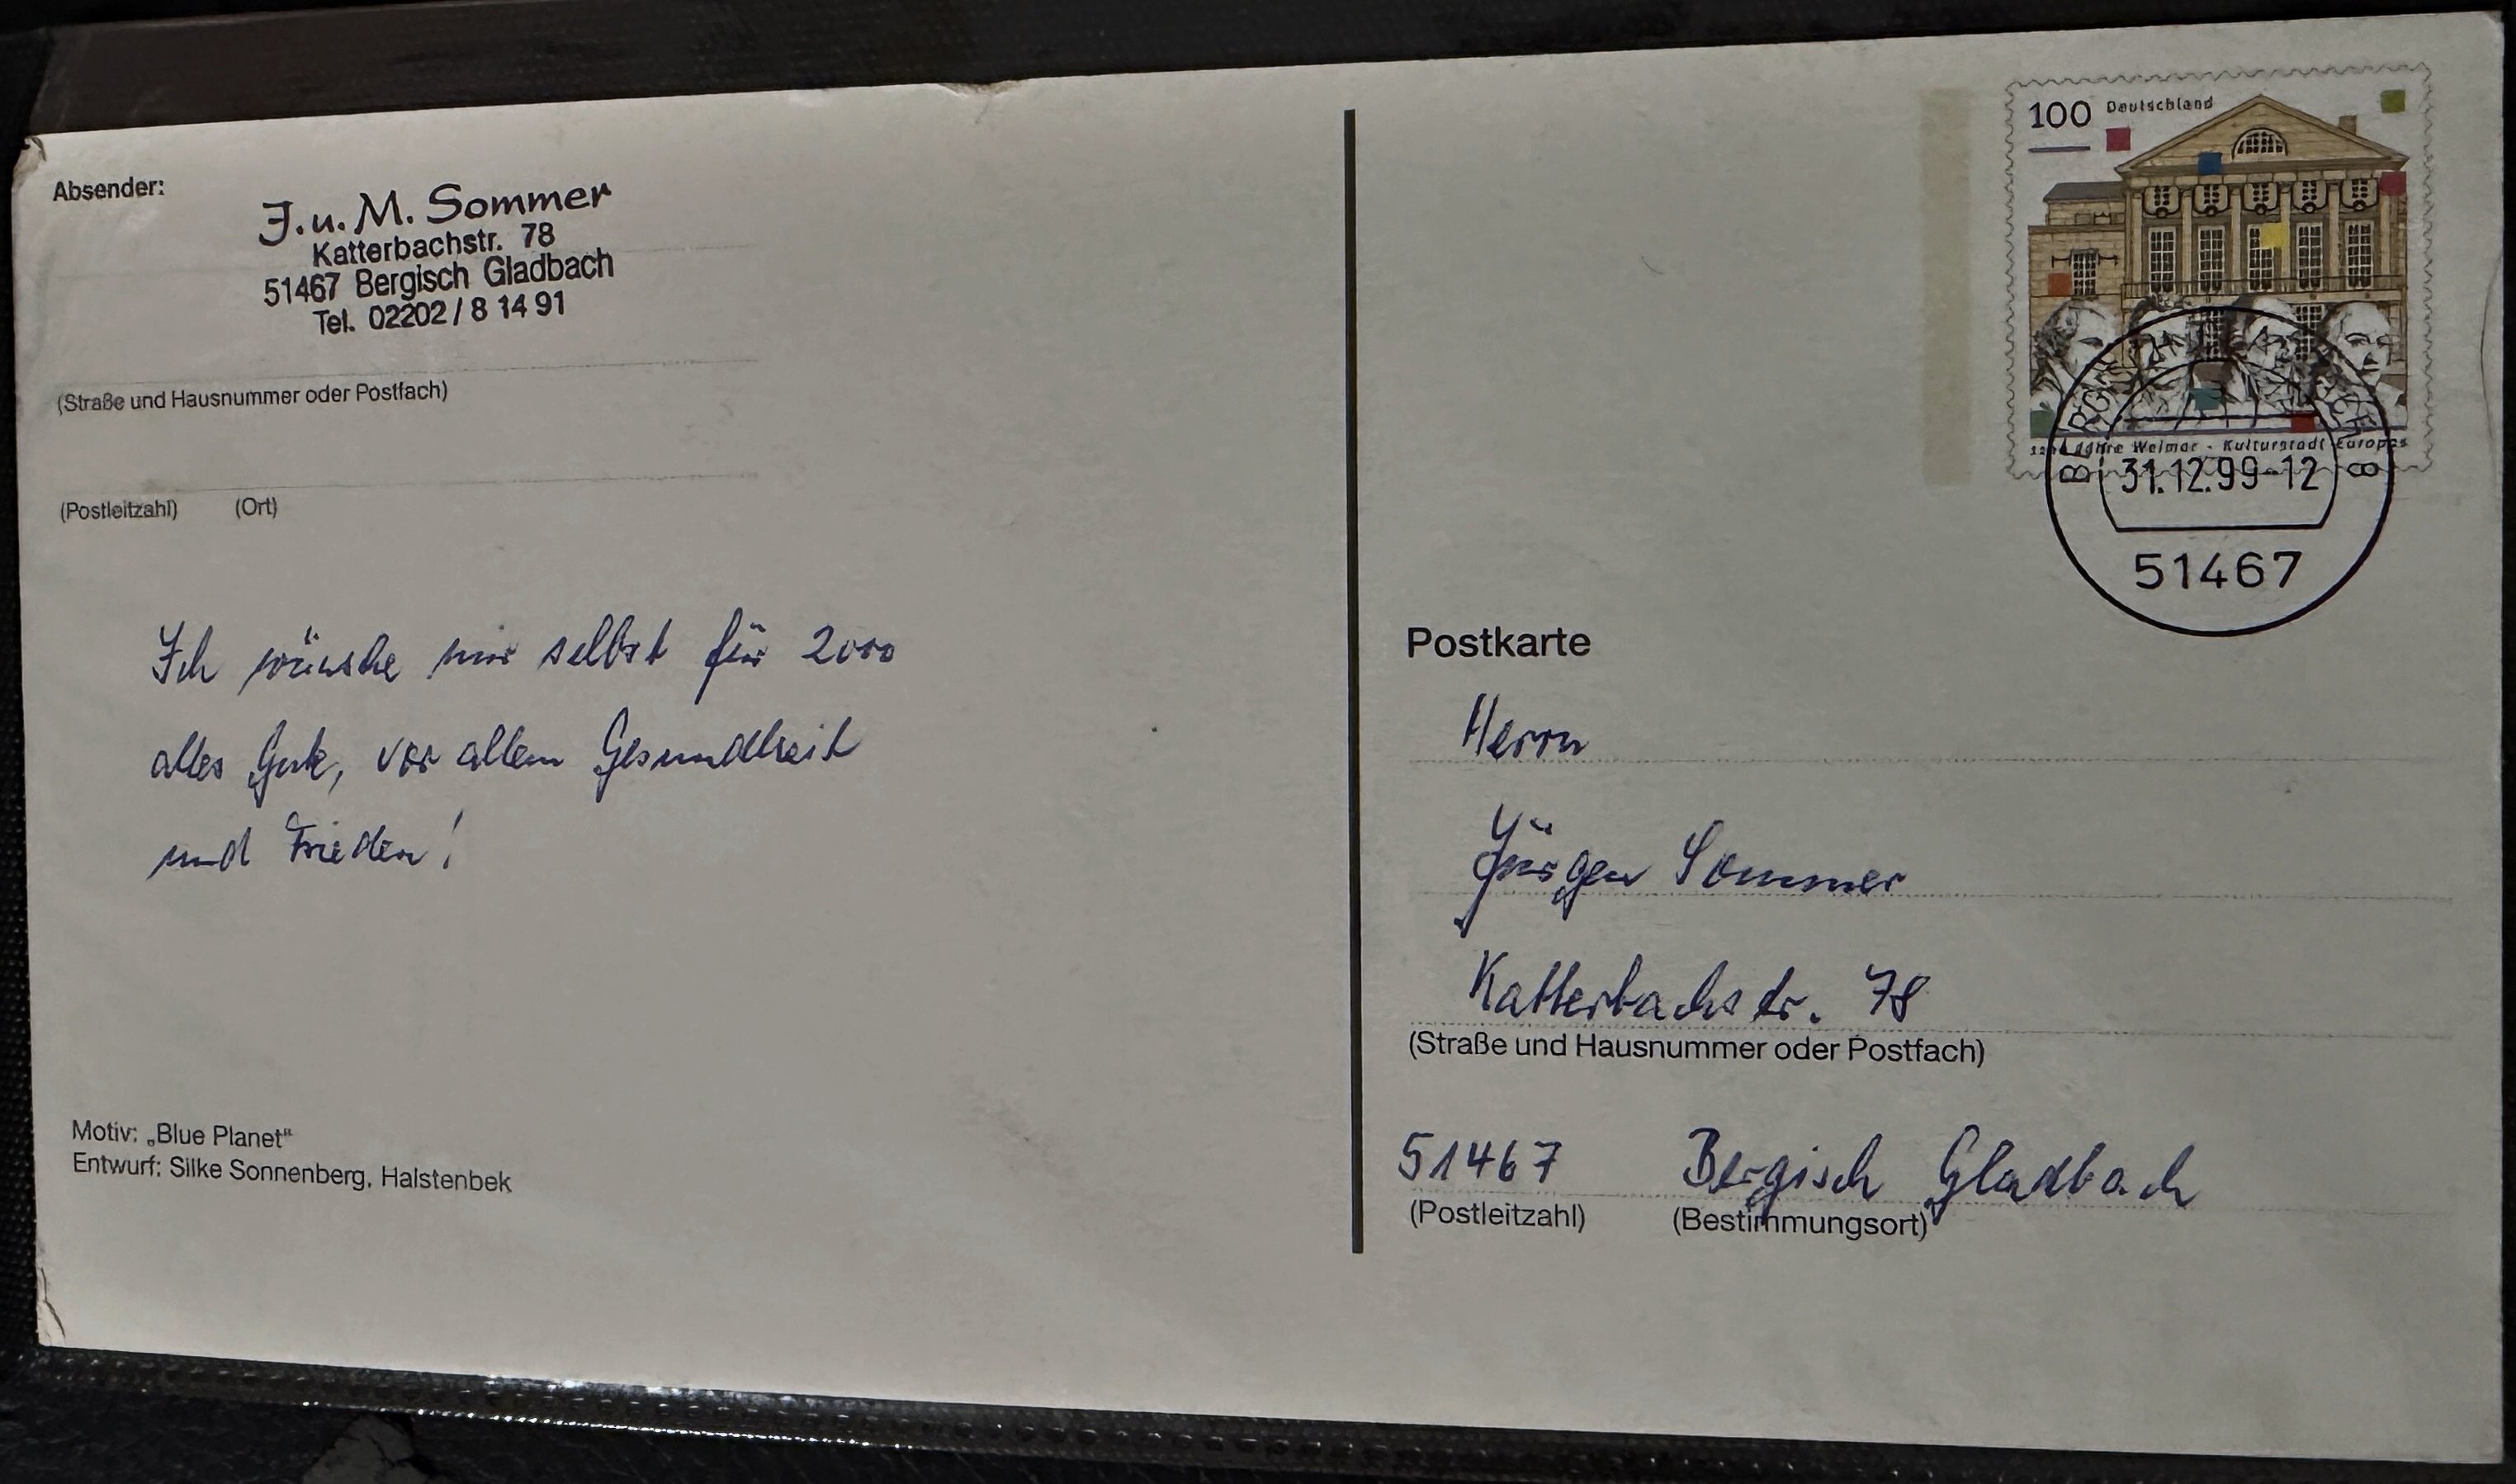 Absender:
J. u. M. Sommer
Katterbachstr. 78
51467 Bergisch Gladbach
Tel. 02202 / 8 14 91
(Straße und Hausnummer oder Postfach)
(Postleitzahl) (Ort)
Ich wünsche mir selbst für 2000
alles Gute, vor allem Gesundheit
und Frieden!
Motiv: „Blue Planet“
Entwurf: Silke Sonnenberg, Halstenbek
100 Deutschland
Jahre Weimar - Kulturstadt Europas
31.12.99-12
51467
Postkarte
Herrn
Jürgen Sommer
Katterbachstr. 78
(Straße und Hausnummer oder Postfach)
51467 Bergisch Gladbach
(Postleitzahl) (Bestimmungsort)